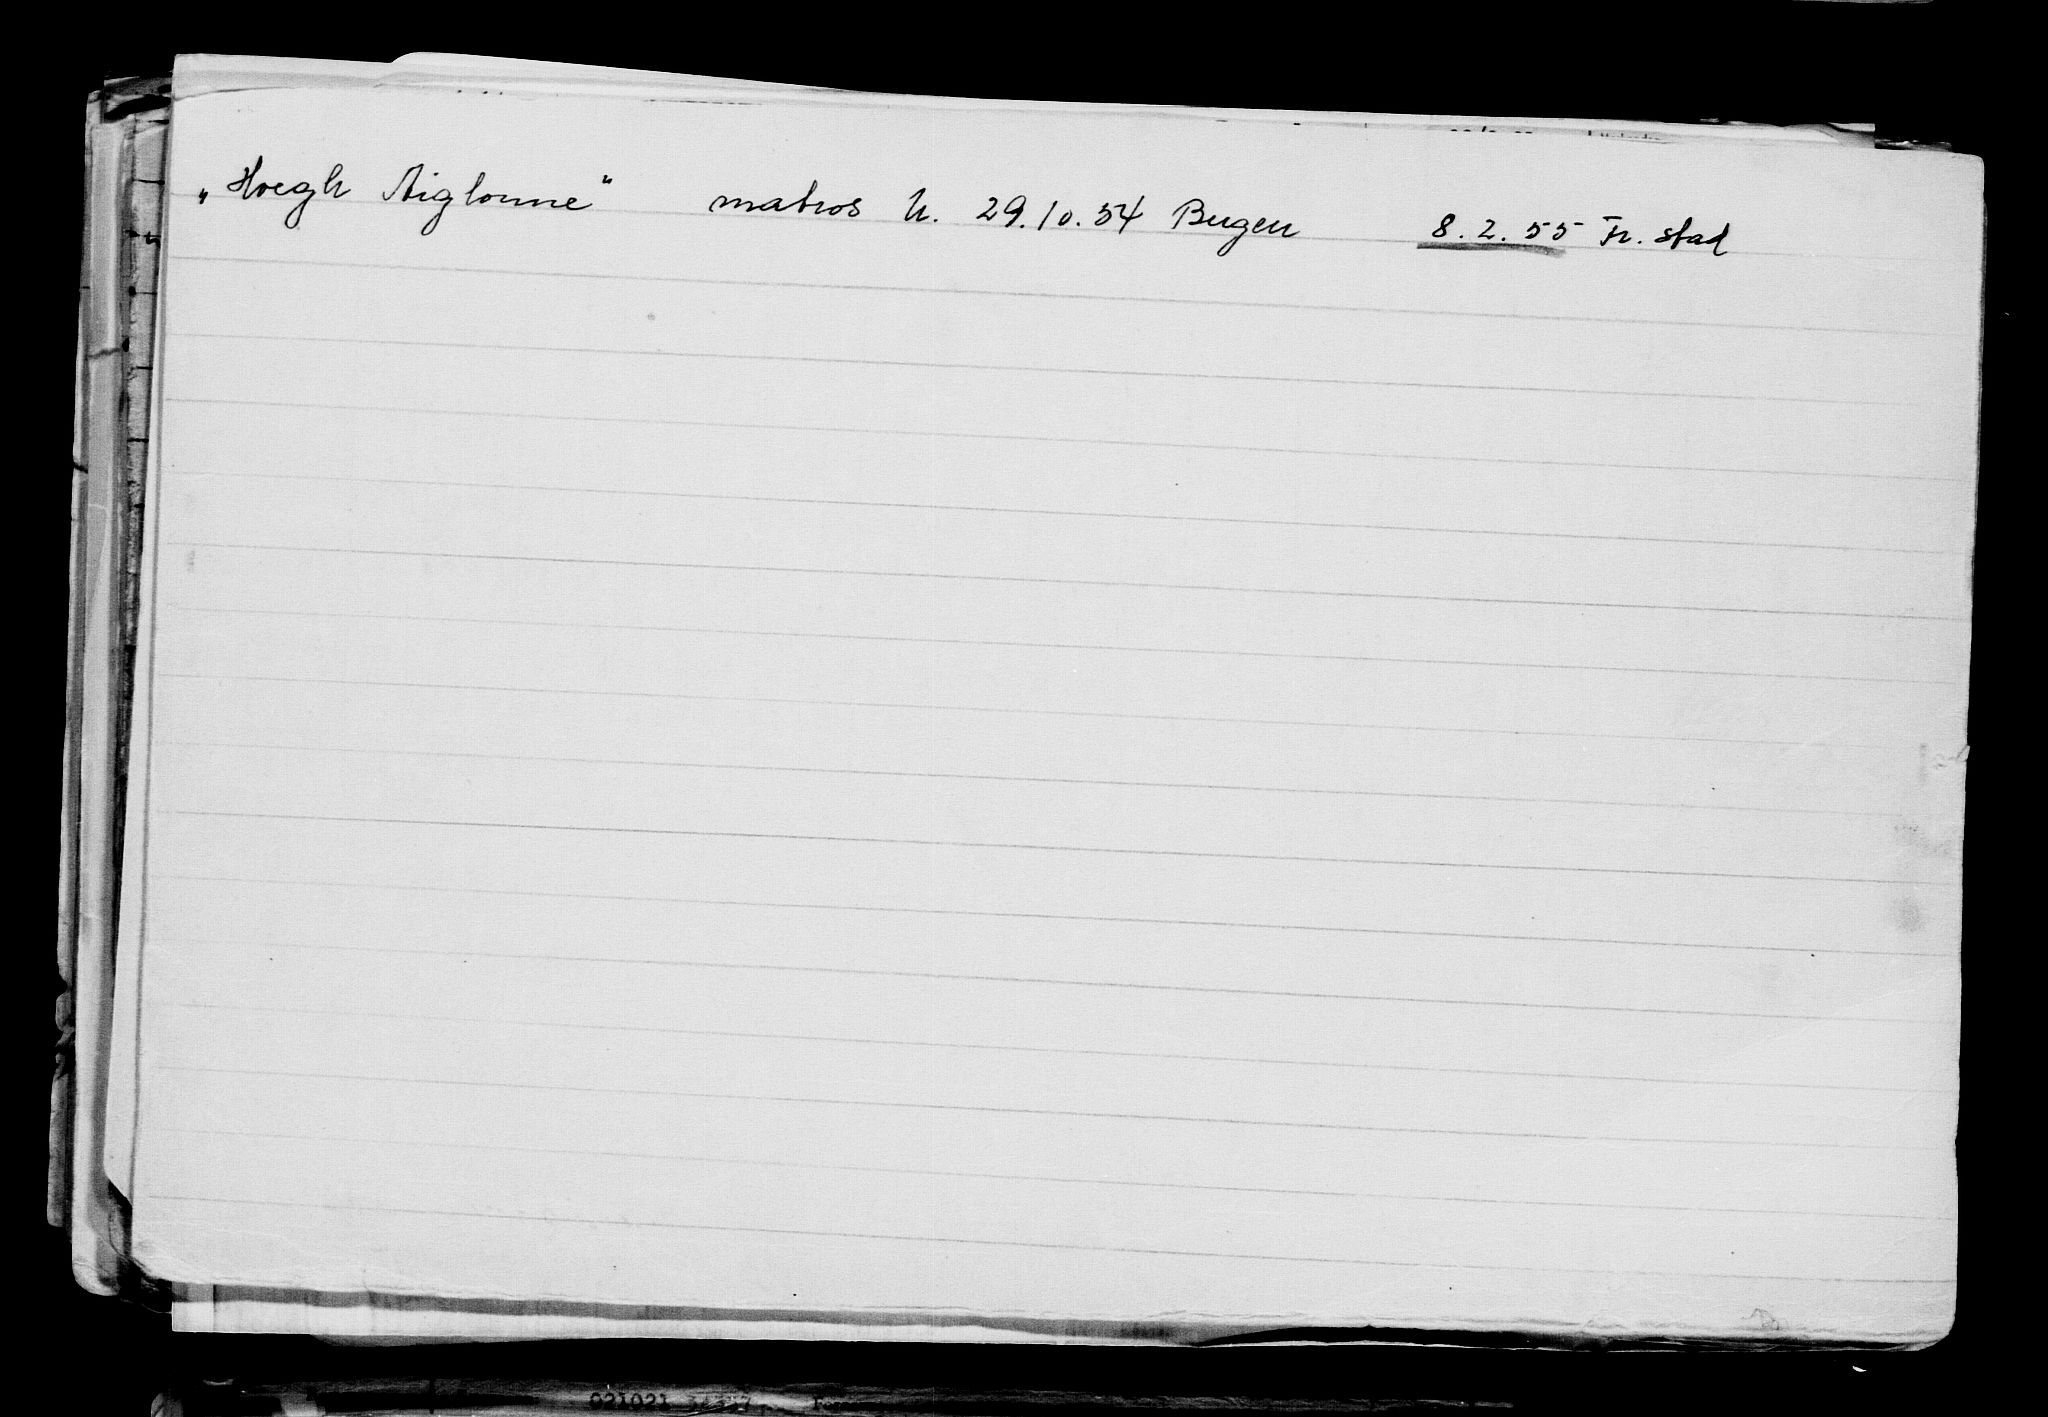 „Hoegh Aiglonne" matros U. 29.10.54 Bergen 8.2.55 Fr. stad